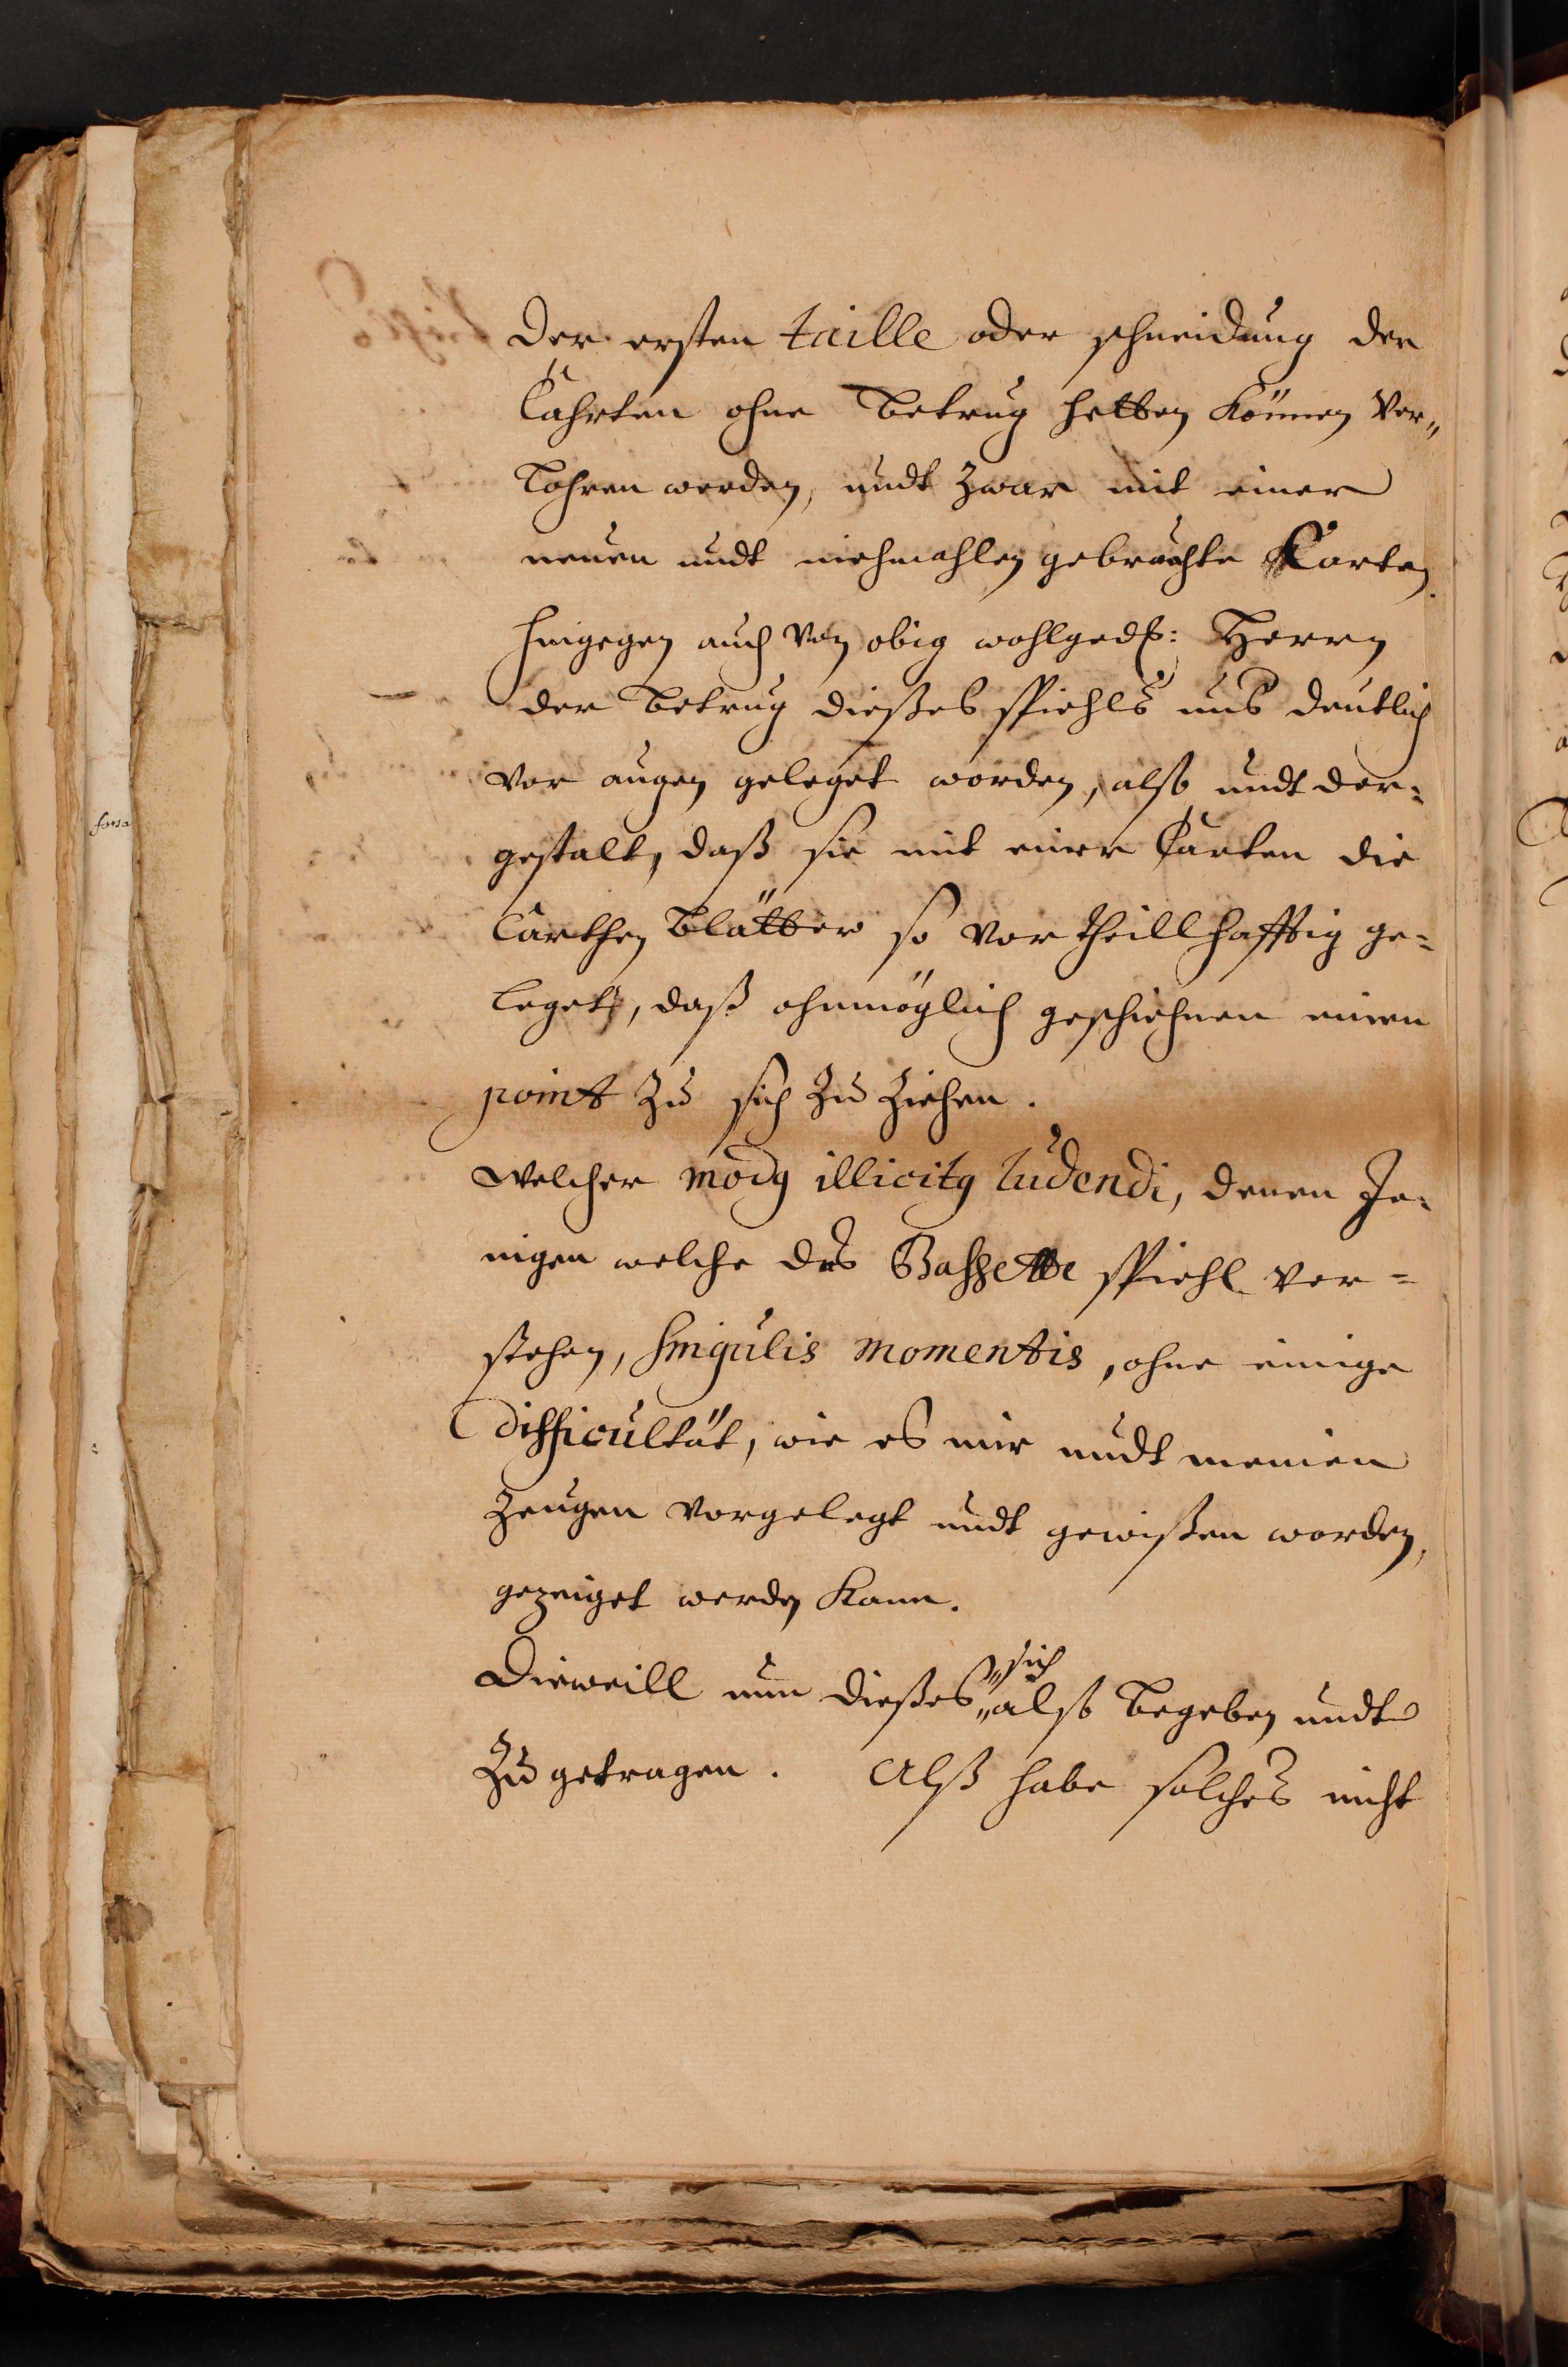 der ersten taille oder schneidung der
Cahrten ohne betrug hetten können ver„
lohren werden, undt zwar mit einer
neuen undt niehmahlen gebrauchte Karten
hingegen auch von obig wohlged: Herrn
der betrug dießes spiehls uns deutlich
vor augen geleget worden, also undt der-
gestalt, daß sie mit einer Carten die
Carthen blätter so vortheillhafftig ge-
leget, daß ohnmöglich geschiehnen einen
point zu sich zu ziehen.
welcher modg illicitg ludendi, denen Je-
nigen welche das Bassette spiehl ver-
stehen, singulis momentis, ohne einige
difficultät, wie es mir undt meinen
zeugen vorgelegt undt gewißen worden,
gezeiget werden kann.
sich
Dieweill nun dießes also begeben undt
zu getragen. Alß habe solches nicht